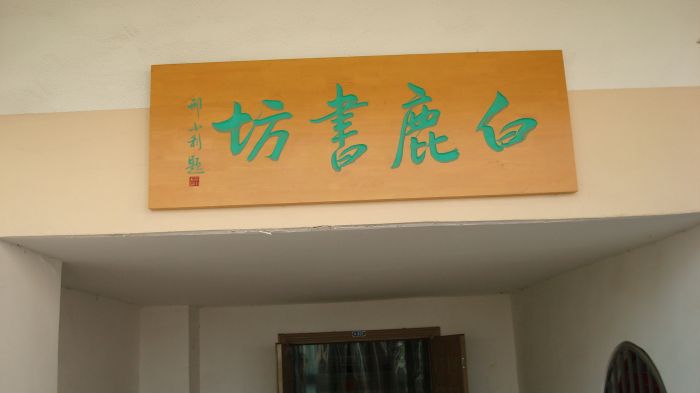 白鹿書坊
邢小利題